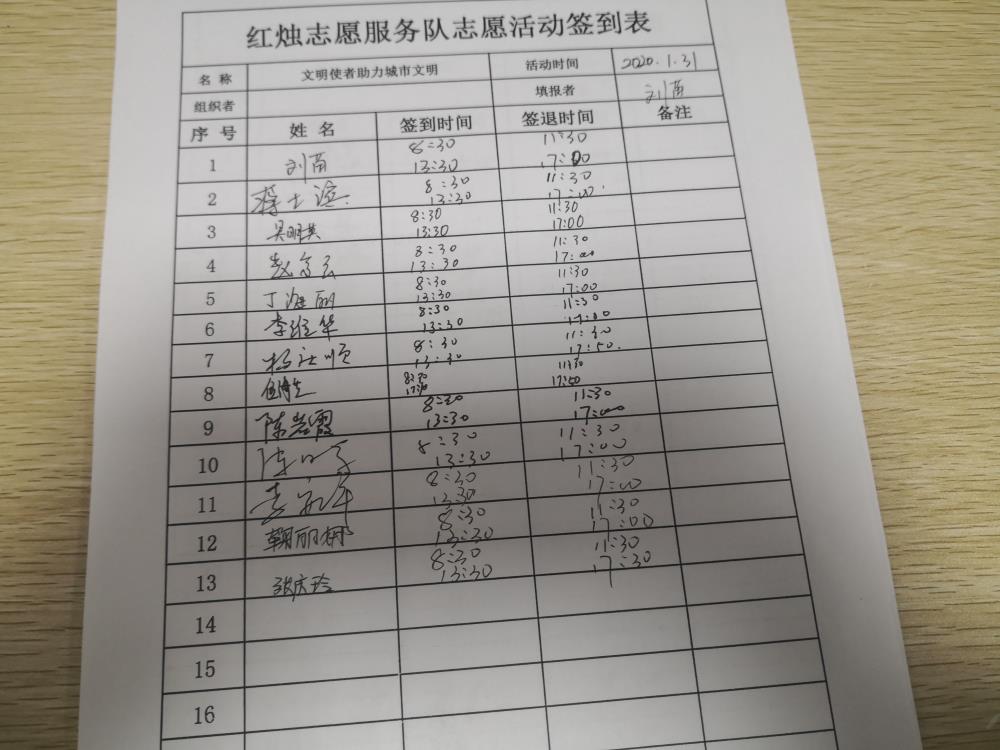 红烛志愿服务队志愿活动签到表
名 称 文明使者助力城市文明 活动时间 2020.1.31
组织者 填报者 刘苗
序 号 姓 名 签到时间 签退时间 备注
1 刘苗 8:30 11:30
13:30 17:00
2 8:30 11:30
13:30 17:00
3 吴明英 8:30 11:30
13:30 17:00
4 8:30 11:30
13:30 17:00
5 丁海丽 8:30 11:30
13:30 17:00
6 李维华 8:30 11:30
13:30 17:00
7 杨 顺 8:30 11:30
13:30
8 8:30 11:30
17:00
9 陈 霞 8:30 11:30
13:30 17:00
10 陈 8:30 11:30
13:30 17:00
11 8:30 11:30
13:30 17:00
12 丽娜 8:30 11:30
13:30 17:00
13 张庆玲 8:30 11:30
13:30 17:30
14
15
16